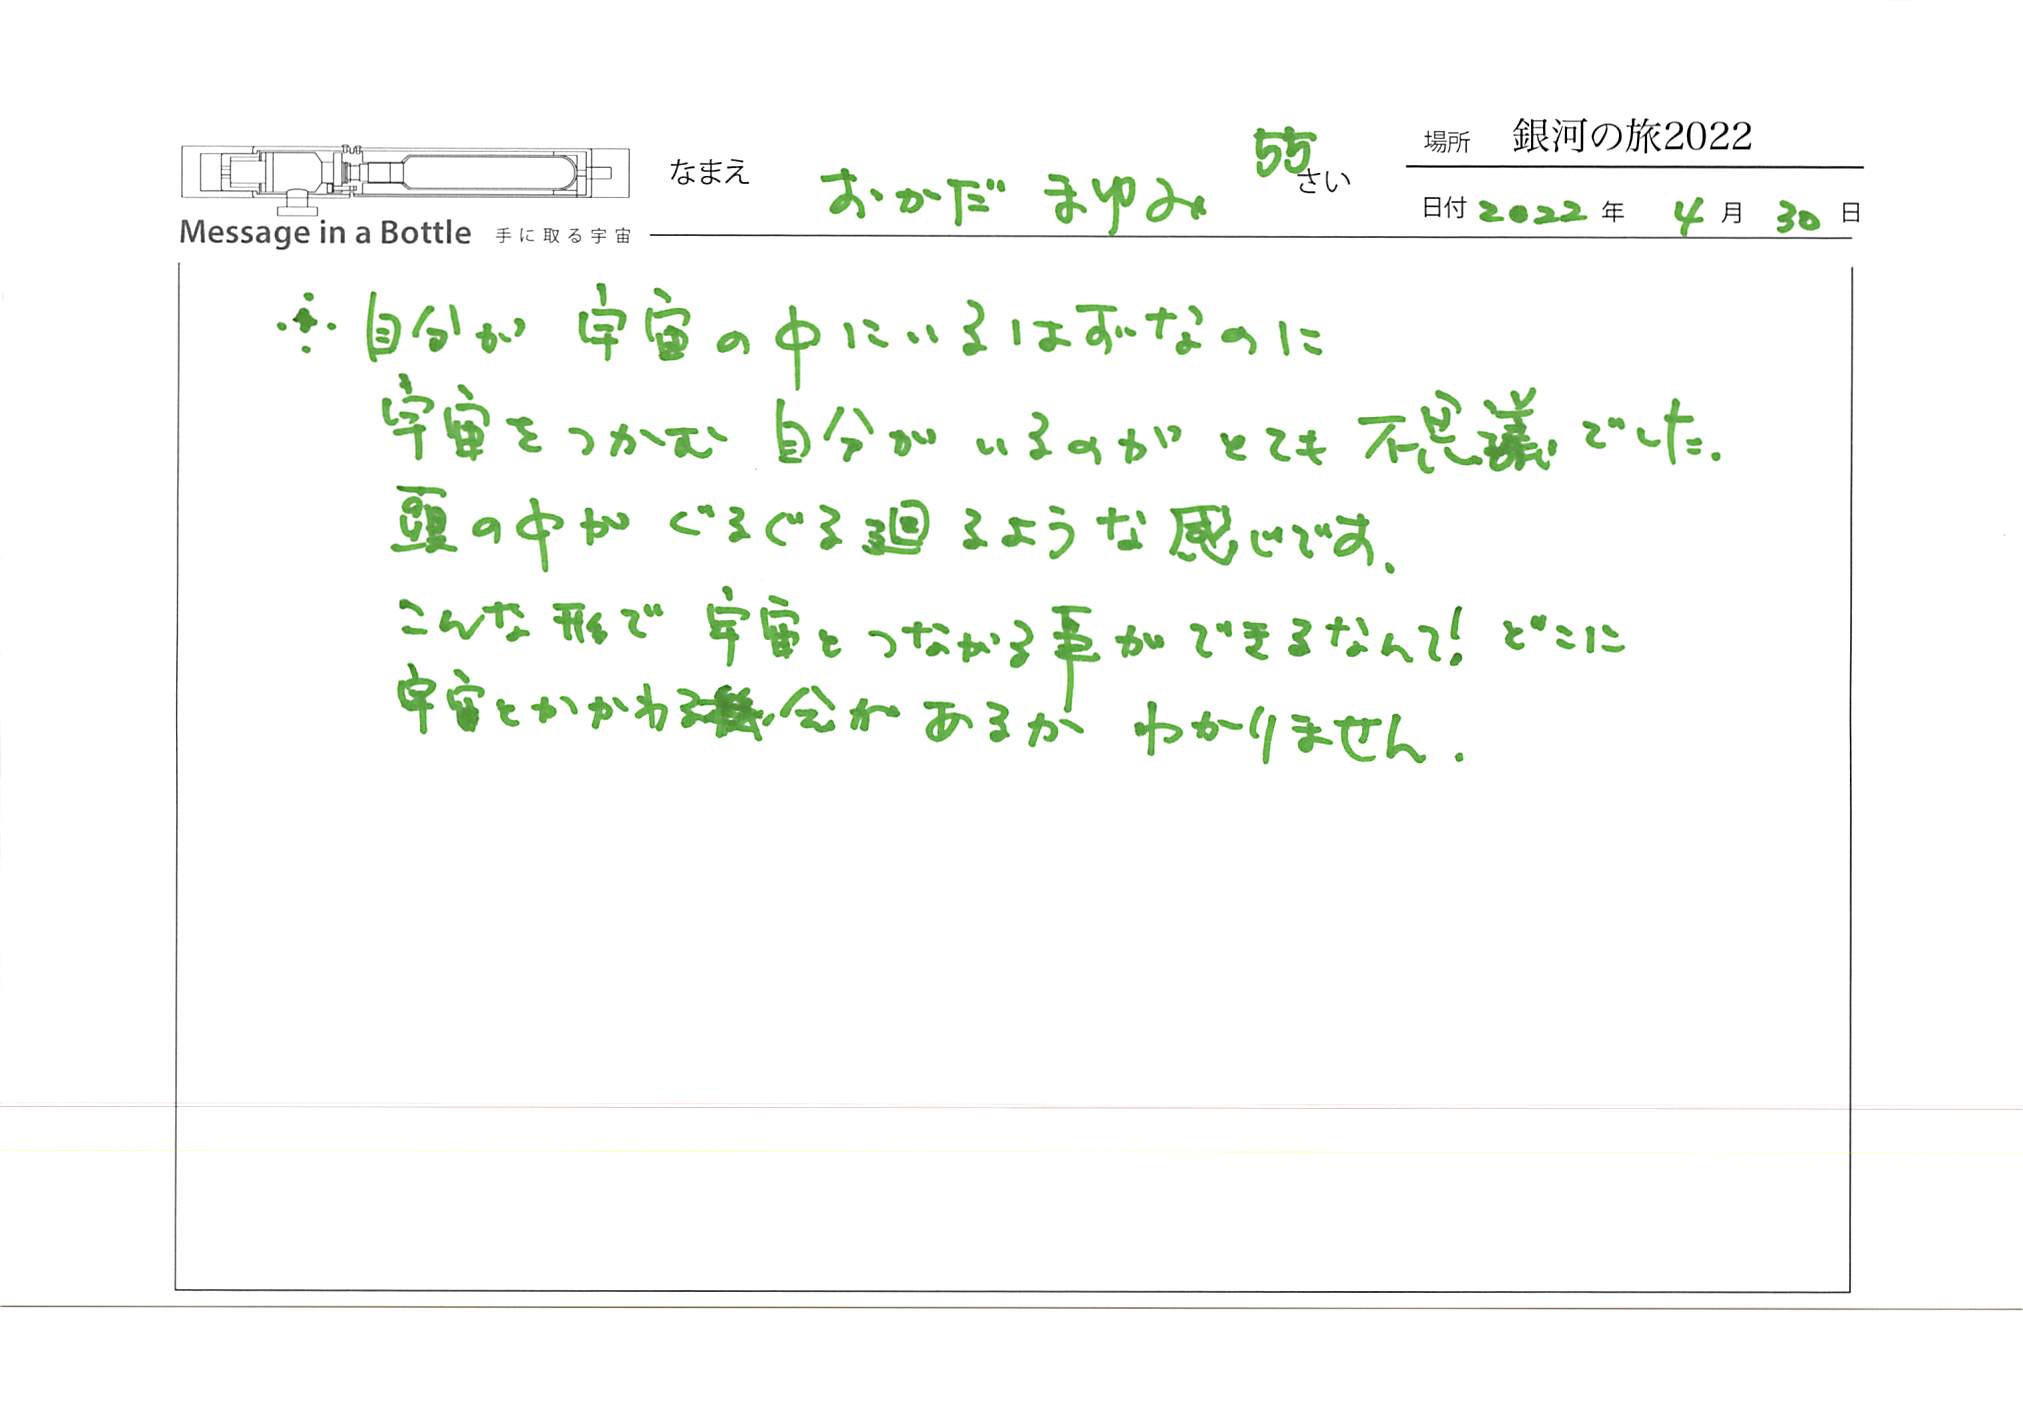 場所 銀河の旅2022
なまえ おかだ まゆみ 55さい
日付 2022年 4月 30日
Message in a Bottle 手に取る宇宙
自分が 宇宙の中にいるはずなのに
宇宙をつかむ 自分が いるのが とても 不思議でした.
頭の中が ぐるぐる廻るような感じです.
こんな形で 宇宙とつながる事ができるなんて! どこに
宇宙とかかわる機会が あるか わかりません.